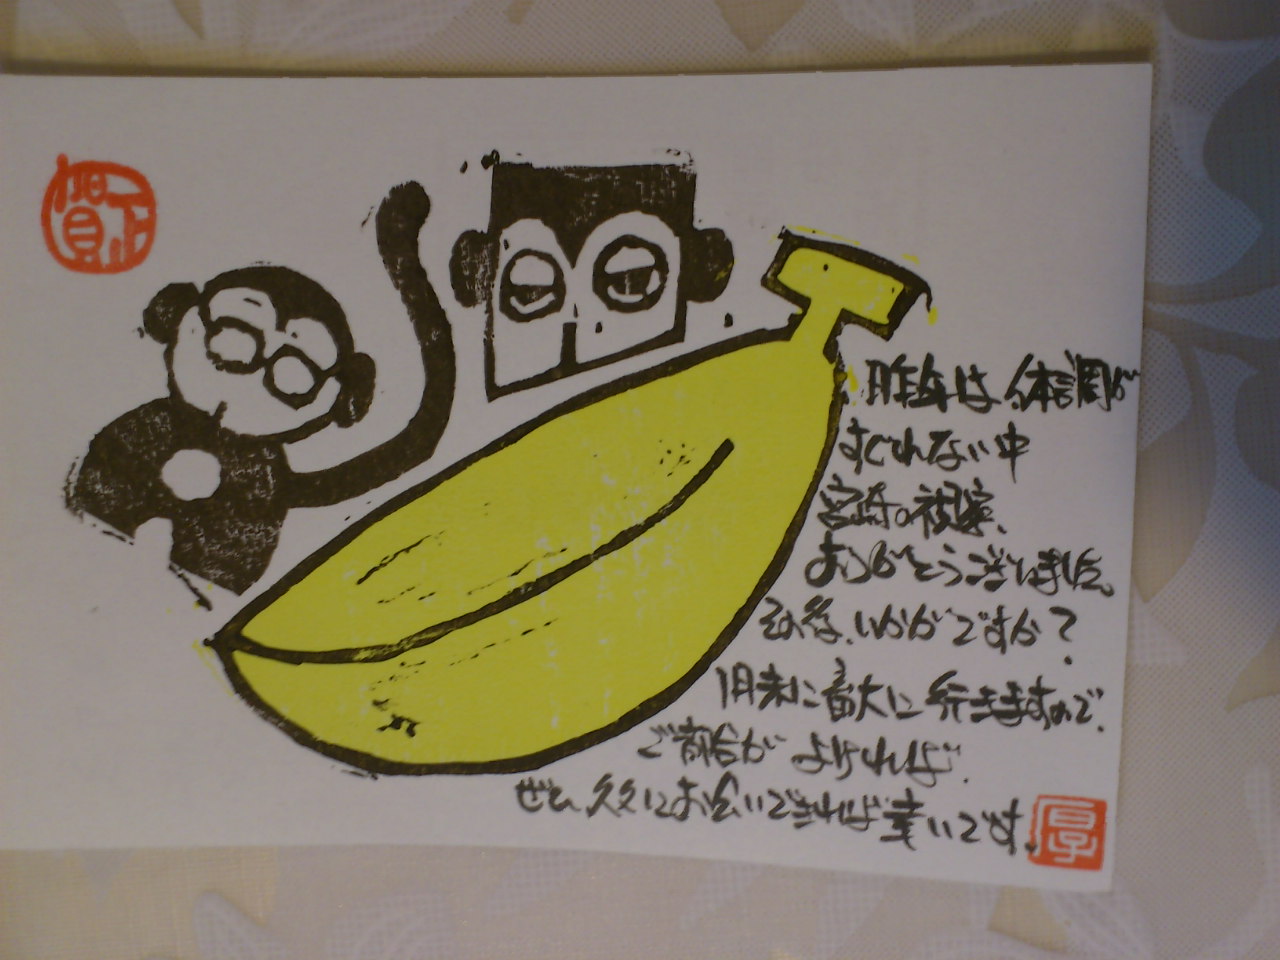 賀正
昨年は、体調が
すぐれない中
視察、
ありがとうございました。
その後、いかがですか？
1月末に畜大に行きますので、
ご都合がよければ、
ぜひ、久々にお会いできれば幸いです。
厚